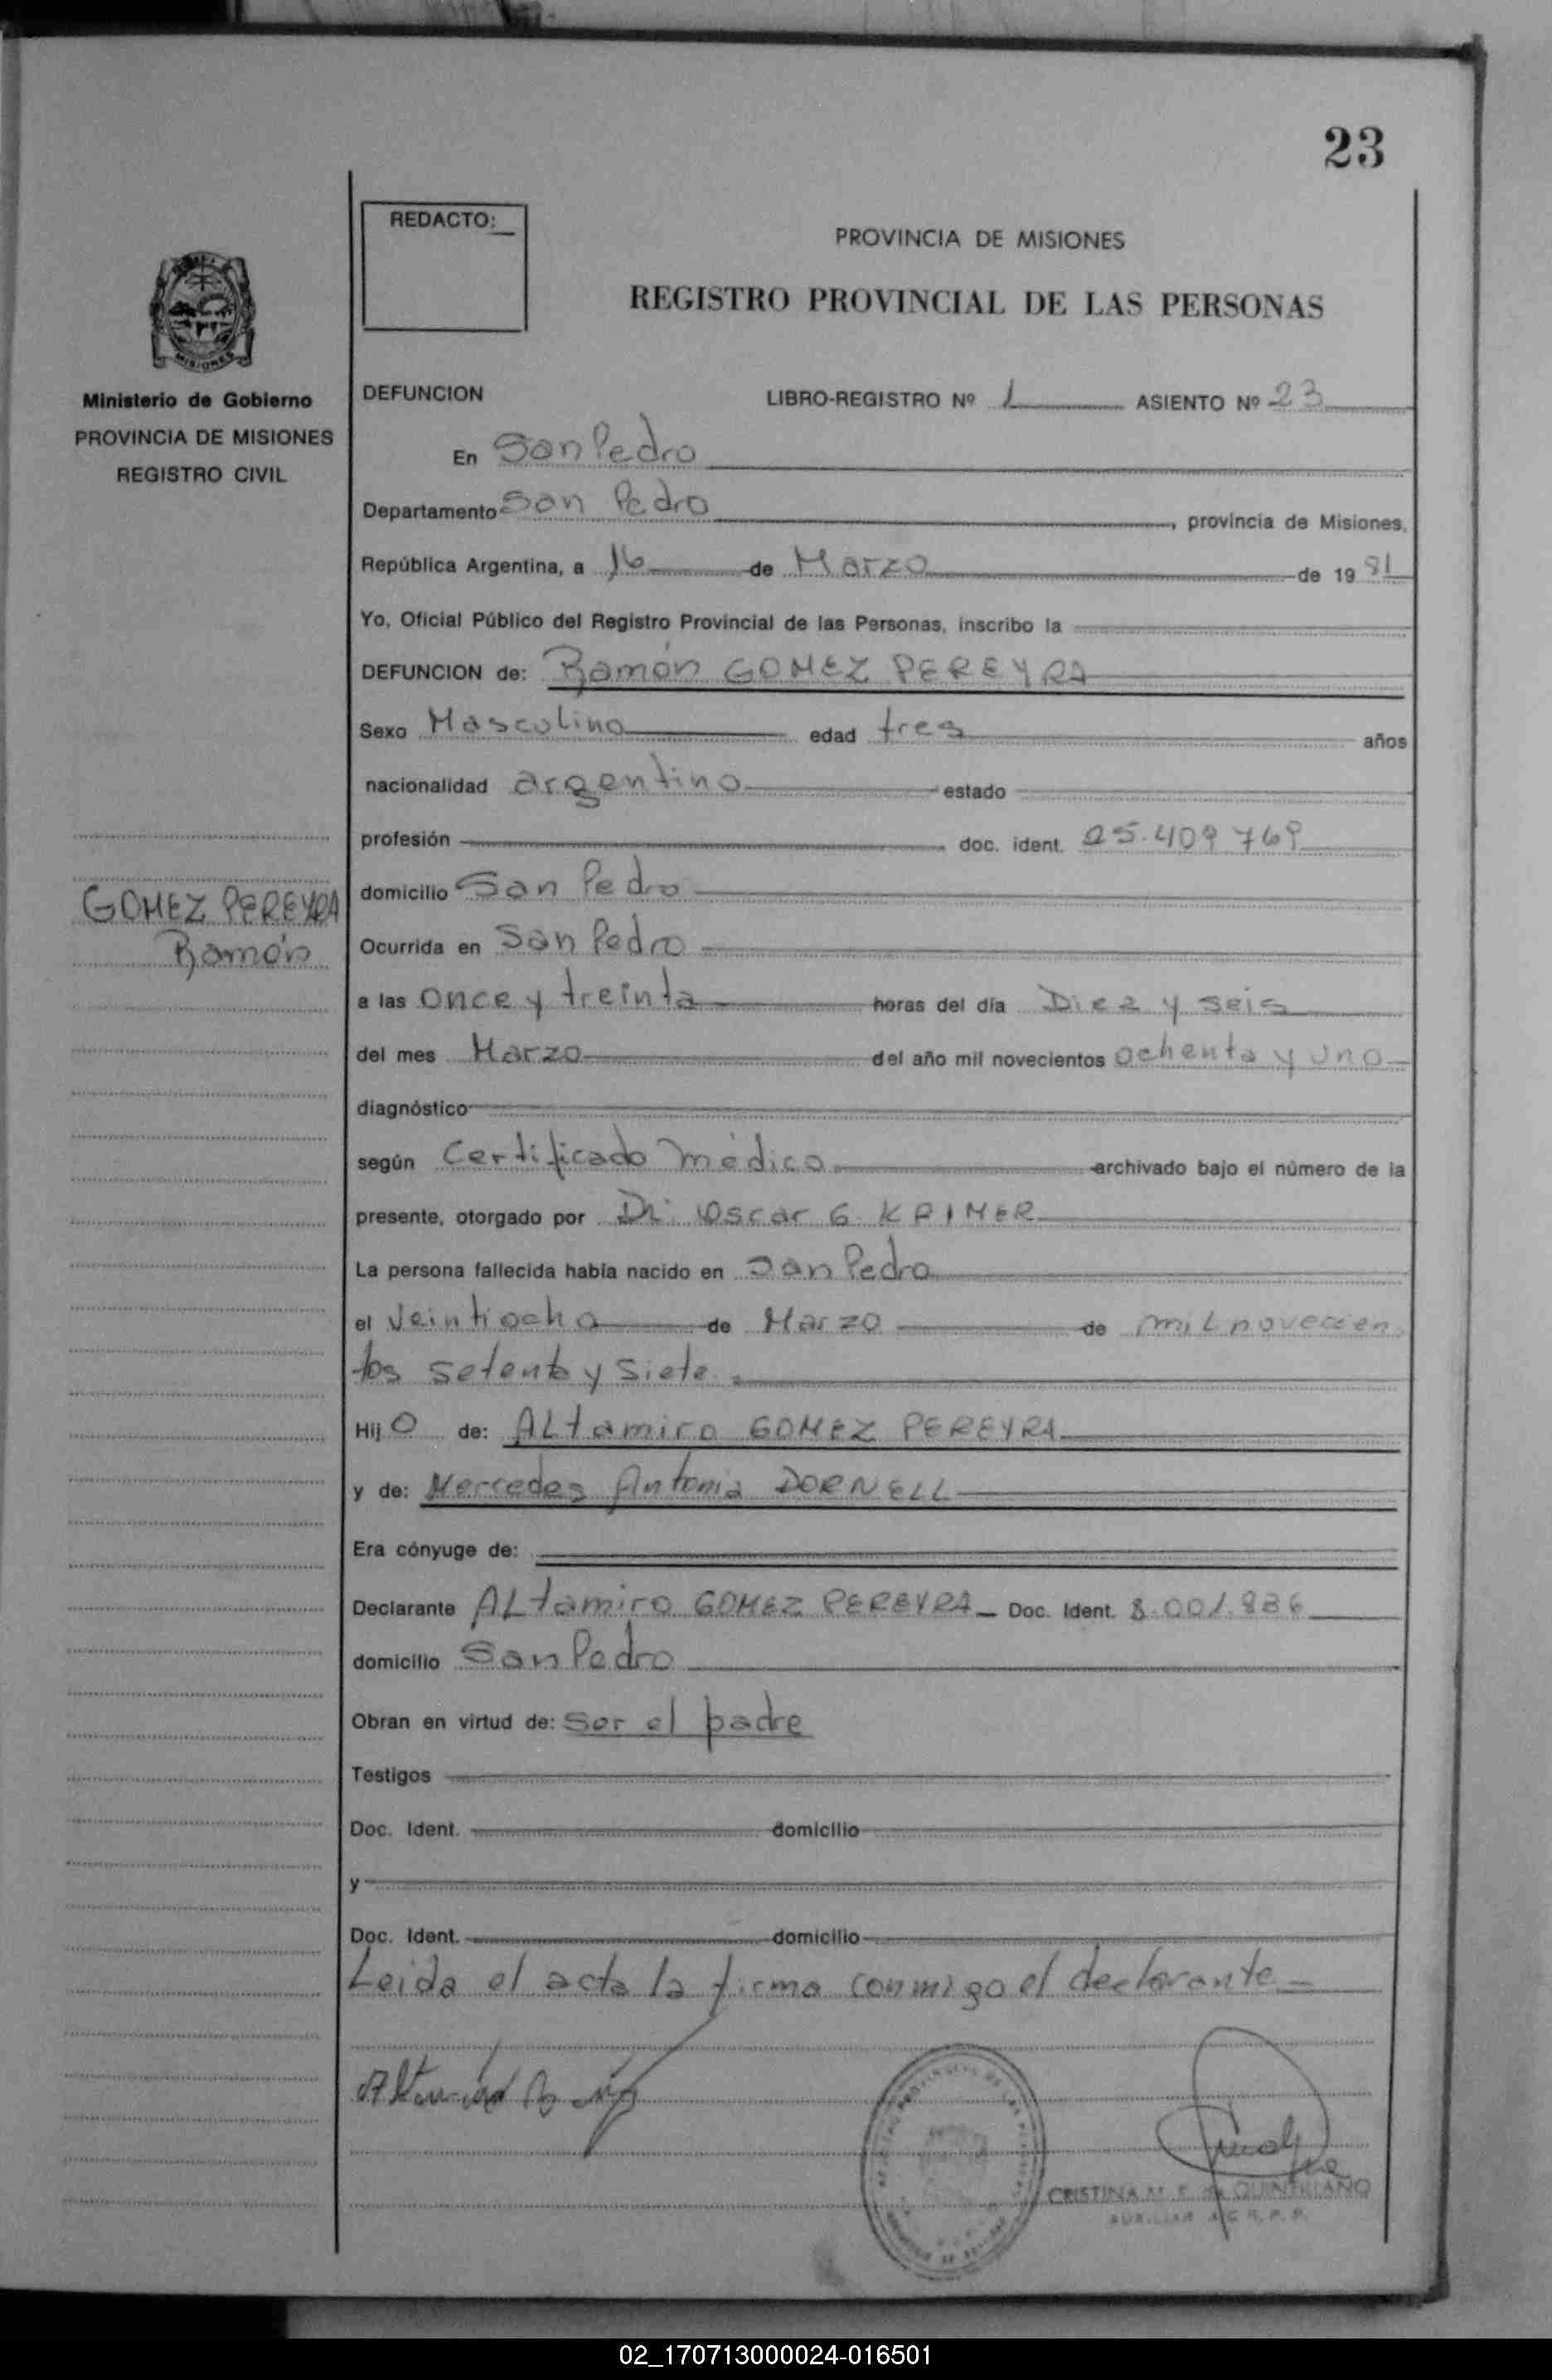 23
REDACTO:
PROVINCIA DE MISIONES
REGISTRO PROVINCIAL DE LAS PERSONAS
MISIONES
Ministerio de Gobierno
PROVINCIA DE MISIONES
REGISTRO CIVIL
GOMEZ PEREYRA
Ramón
DEFUNCION LIBRO-REGISTRO Nº 1 ASIENTO Nº 23
En San Pedro
Departamento San Pedro, provincia de Misiones,
República Argentina, a 16 de Marzo de 19 81
Yo, Oficial Público del Registro Provincial de las Personas, inscribo la
DEFUNCION de: Ramón GOMEZ PEREYRA
Sexo Masculino edad tres años
nacionalidad argentino estado
profesión doc. ident. 25.409 769
domicilio San Pedro
Ocurrida en San Pedro
a las once y treinta horas del día Diez y seis
del mes Marzo del año mil novecientos ochenta y uno
diagnóstico
según Certificado médico archivado bajo el número de la
presente, otorgado por Dr. Oscar G. KRIMER
La persona fallecida había nacido en San Pedro
el Veintiocho de Marzo de mil novecien
tos setenta y siete.
Hij o de: ALtamiro GOMEZ PEREYRA
y de: Mercedes Antonia DORNELL
Era cónyuge de:
Declarante ALtamiro GOMEZ PEREYRA Doc. Ident. 8.001.886
domicilio San Pedro
Obran en virtud de: ser el padre
Testigos
Doc. Ident. domicilio
y
Doc. Ident. domicilio
Leida el acta la firma conmigo el declarante
CRISTINA M. E. de QUINTILIANO
AUXILIAR
02_170713000024-016501